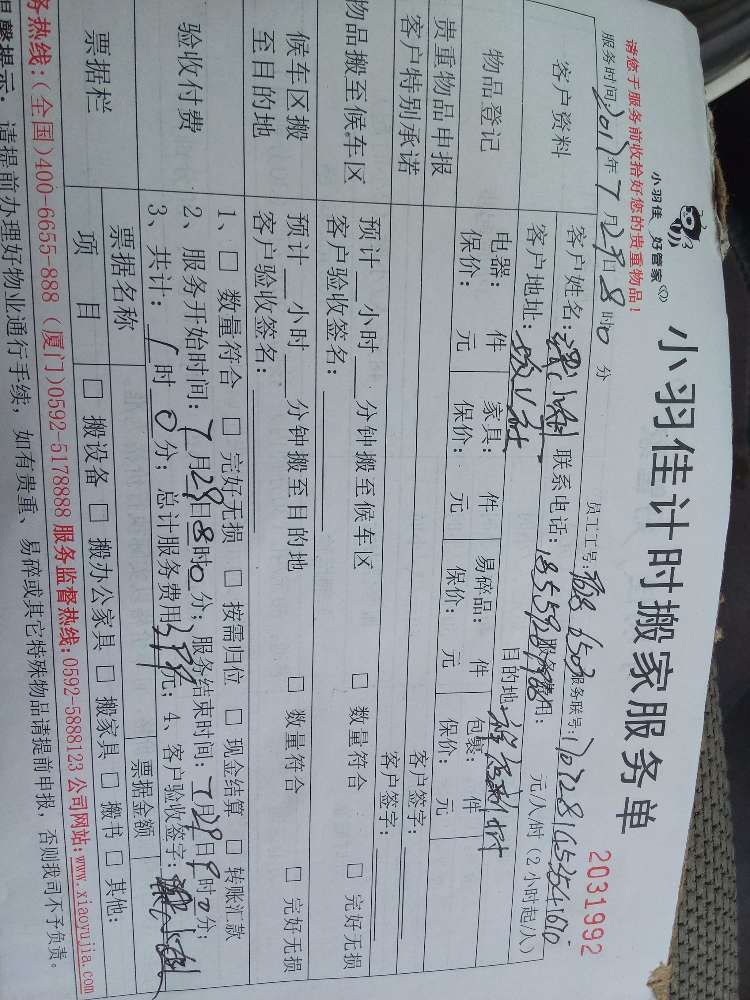 小羽佳 好管家
小羽佳计时搬家服务单
2031992
请您于服务前收拾好您的贵重物品！
服务时间：2017年7月29日8时0分 员工工号： 服务联号：
客户资料
客户姓名： 联系电话： 服务费用： 元/人/时（2小时起/人）
客户地址： 目的地：
物品登记
电器： 件 家具： 件 易碎品： 件 包裹： 件
保价： 元 保价： 元 保价： 元 保价： 元
贵重物品申报
客户签字：
客户特别承诺
客户签字：
物品搬至候车区
预计__小时__分钟搬至候车区 □ 数量符合 □ 完好无损
客户验收签名：
候车区搬至目的地
预计__小时__分钟搬至目的地 □ 数量符合 □ 完好无损
客户验收签名：
验收付费
1、□ 数量符合 □ 完好无损 □ 按需归位 □ 现金结算 □ 转账汇款
2、服务开始时间：7月29日8时0分；服务结束时间：7月29日9时0分；
3、共计：1时0分；总计服务费用 元；4、客户验收签字：
票据栏
票据名称 票据金额
项目 □ 搬设备 □ 搬办公家具 □ 搬家具 □ 搬书 □ 其他：
务热线：(全国)400-6655-888 (厦门)0592-5178888 服务监督热线：0592-5888123 公司网站：www.xiaoyujia.com
温馨提示：请提前办理好物业通行手续，如有贵重、易碎或其它特殊物品请提前申报，否则我司不予负责。